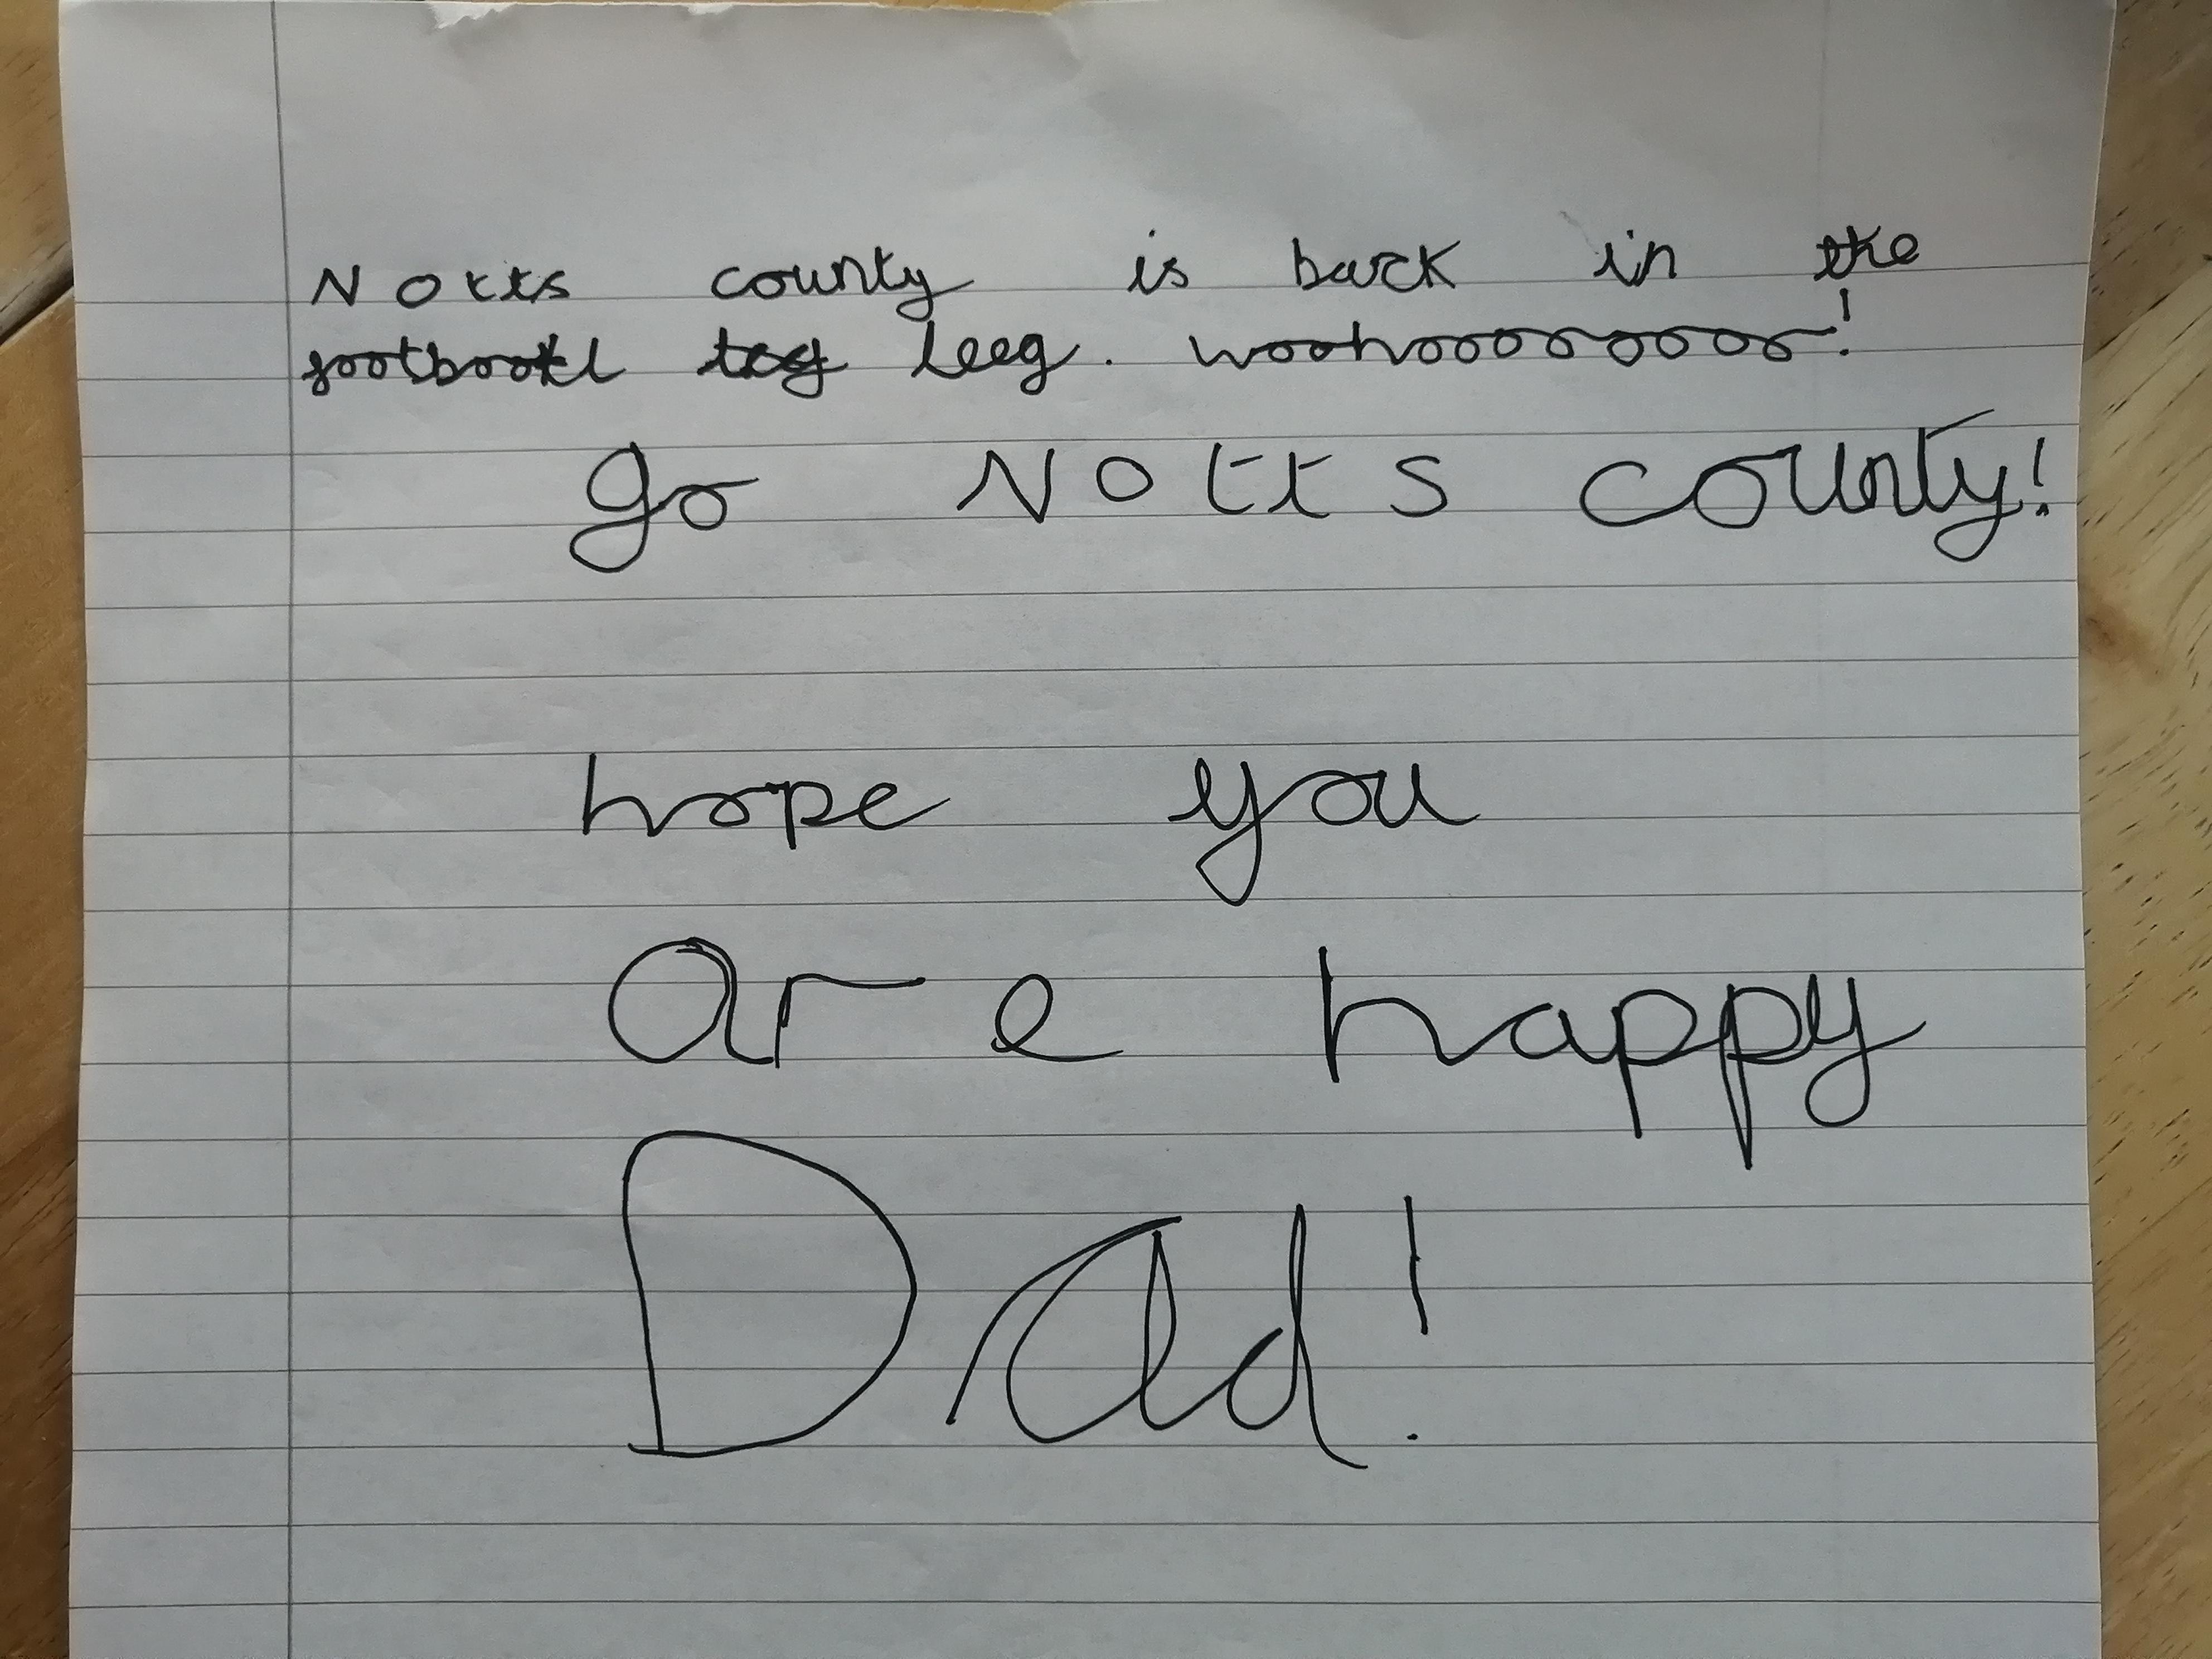 Notts county is back in the
football leeg. woohooooooooo!
go Notts county!
hope you
are happy
Dad!